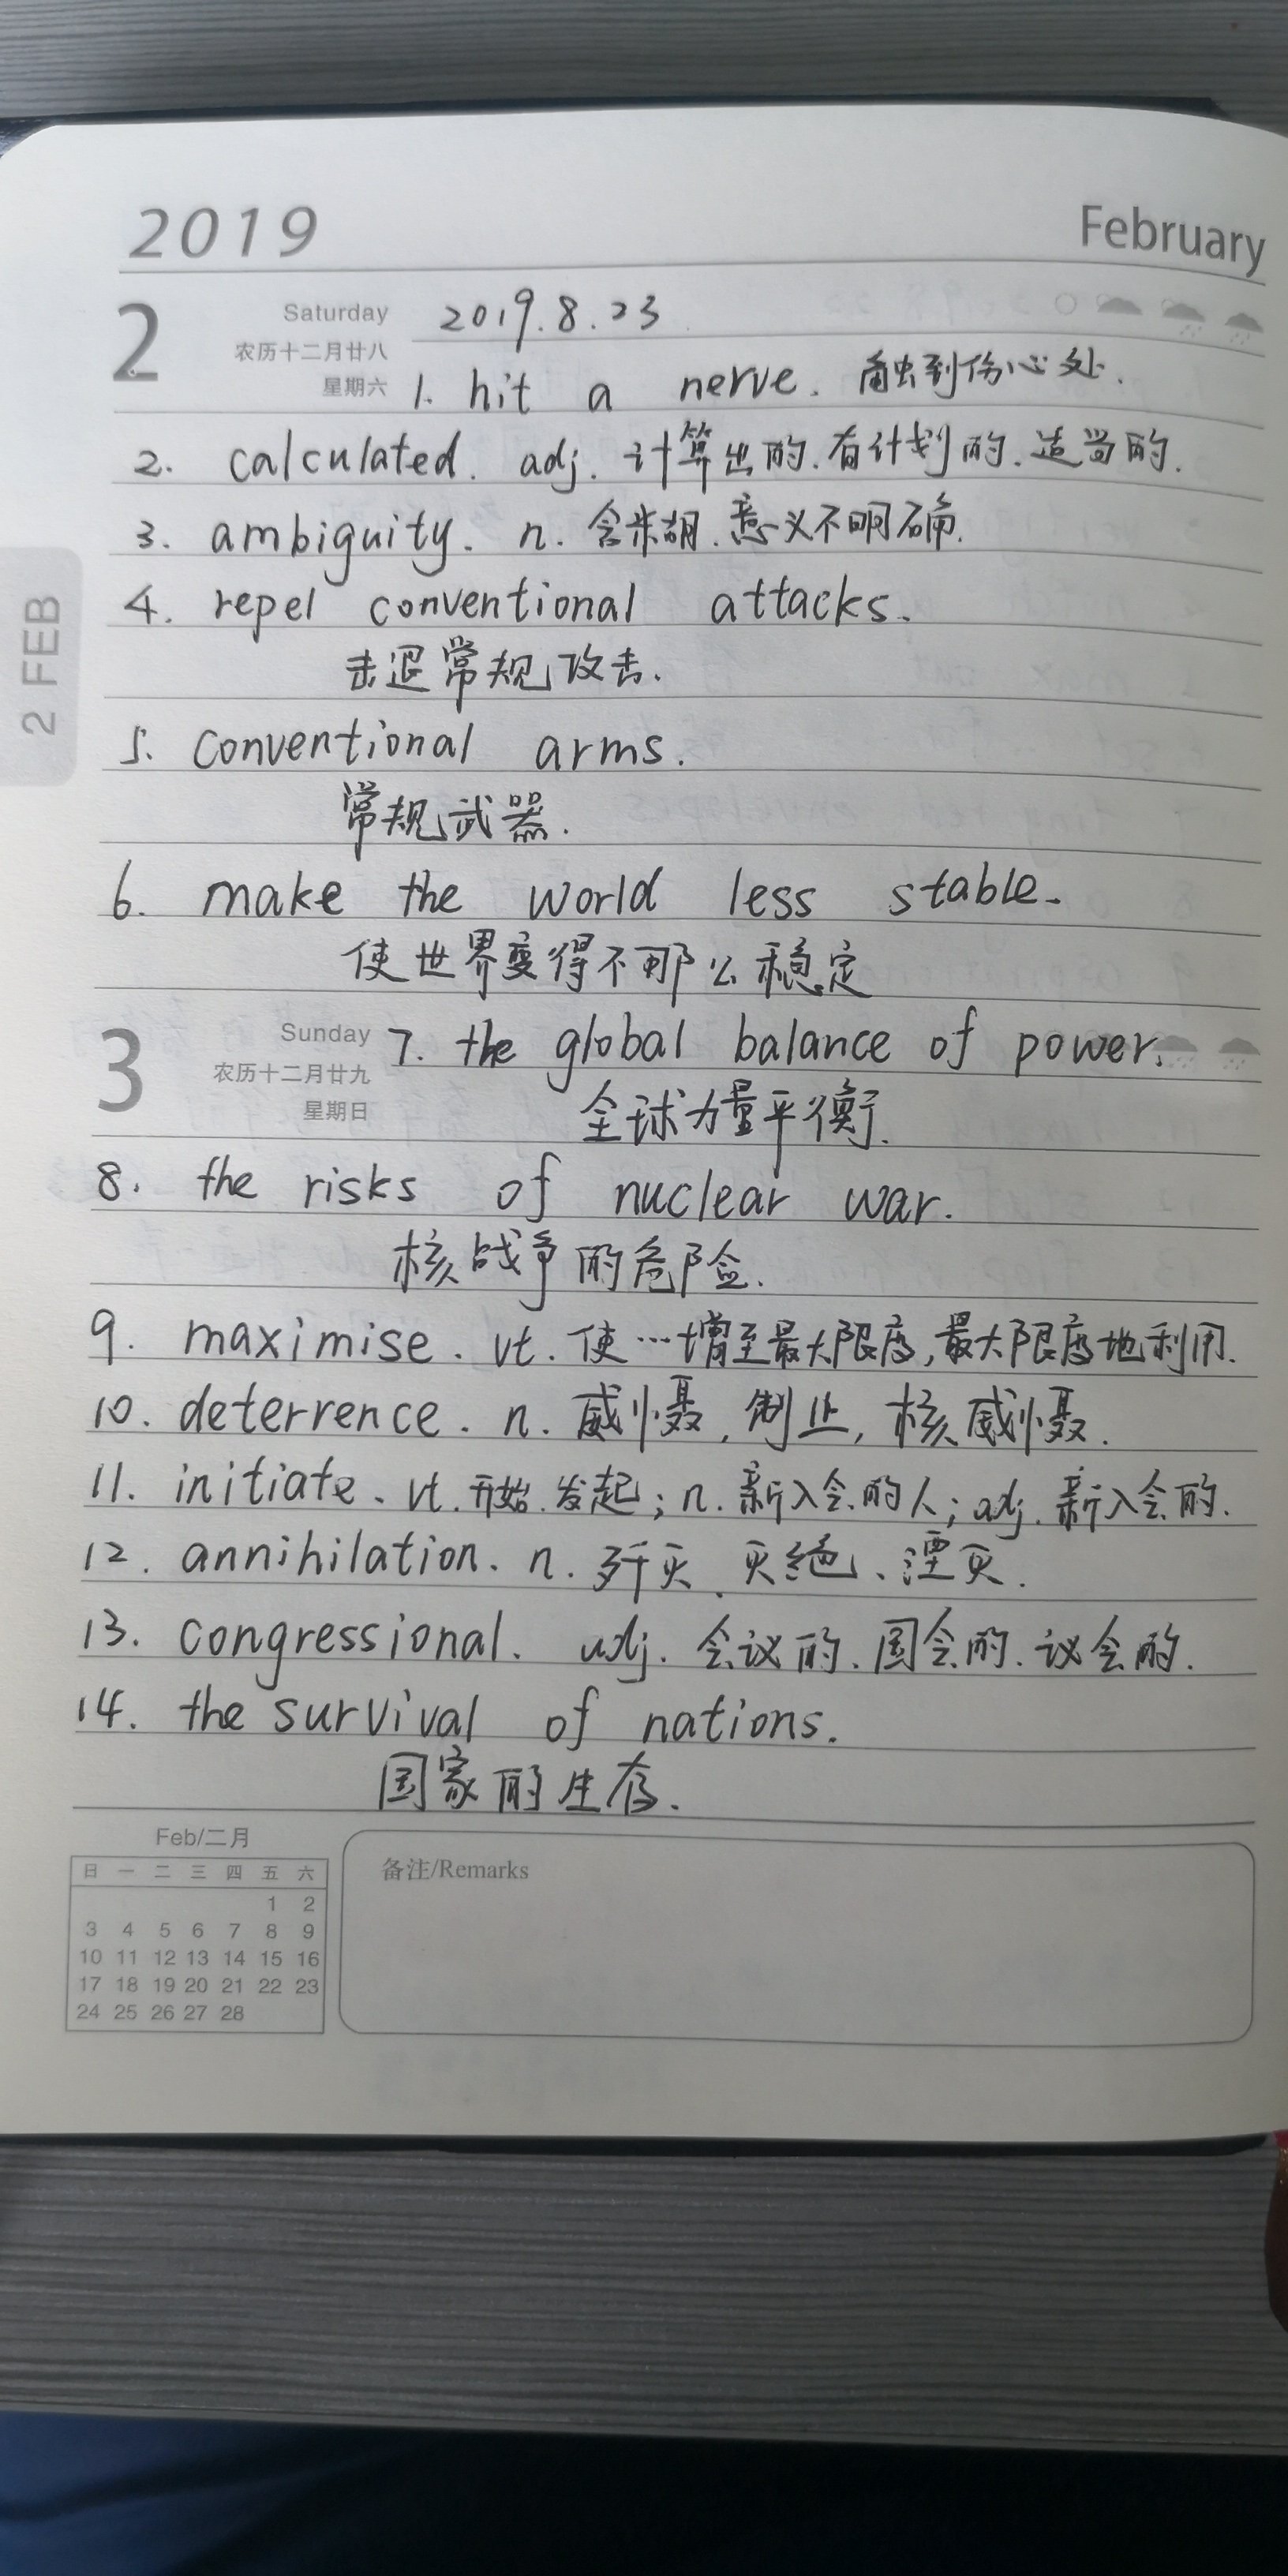 2019 February
2 FEB
2 Saturday 2019.8.23
农历十二月廿八
星期六 1. hit a nerve. 触到伤心处.
2. calculated. adj. 计算出的.有计划的.适当的.
3. ambiguity. n. 含糊.意义不明确.
4. repel conventional attacks.
击退常规攻击.
5. conventional arms.
常规武器.
6. make the world less stable.
使世界变得不那么稳定
3 Sunday 7. the global balance of power.
农历十二月廿九
星期日 全球力量平衡.
8. the risks of nuclear war.
核战争的危险.
9. maximise. vt. 使…增至最大限度,最大限度地利用.
10. deterrence. n. 威慑,制止,核威慑.
11. initiate. vt.开始.发起; n. 新入会的人; adj. 新入会的.
12. annihilation. n. 歼灭.灭绝、湮灭.
13. congressional. adj. 会议的.国会的.议会的.
14. the survival of nations.
国家的生存.
Feb/二月
日 一 二 三 四 五 六
1 2
3 4 5 6 7 8 9
10 11 12 13 14 15 16
17 18 19 20 21 22 23
24 25 26 27 28
备注/Remarks